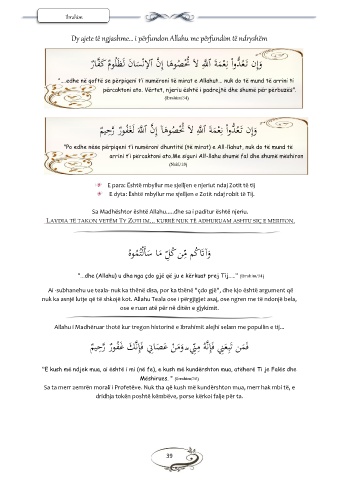 Ibrahim
Dy ajete të ngjashme... i përfundon Allahu me përfundim të ndryshëm
وَإِن تَعُدُّواْ نِعْمَةَ اللّهِ لاَ تُحْصُوهَا إِنَّ الإِنسَانَ لَظَلُومٌ كَفَّارٌ
"....edhe në qoftë se përpiqeni t'i numëroni të mirat e Allahut... nuk do të mund të arrini ti
përcaktoni ato. Vërtet, njeriu është i padrejtë dhe shumë për përbuzës".
(Ibrahim:34)
وَإِن تَعُدُّواْ نِعْمَةَ اللّهِ لاَ تُحْصُوهَا إِنَّ اللّهَ لَغَفُورٌ رَّحِيمٌ
"Po edhe nëse përpiqeni t'i numëroni dhuntitë (të mirat) e All-llahut, nuk do të mund të
arrini t'i përcaktoni ato.Me siguri All-llahu shumë fal dhe shumë mëshiron
(Nahl:18)
E para: Është mbyllur me sjelljen e njeriut ndaj Zotit të tij
E dyta: Është mbyllur me sjelljen e Zotit ndaj robit të Tij.
Sa Madhështor është Allahu.....dhe sa i paditur është njeriu.
LAVDIA TË TAKON VETËM TY ZOTI IM... KURRË NUK TË ADHURUAM ASHTU SIÇ E MERITON.
وَآتَاكُم مِّن كُلِّ مَا سَأَلْتُمُوهُ
"...dhe (Allahu) u dha nga çdo gjë që ju e kërkuat prej Tij....." (Ibrahim:34)
Ai -subhanehu ue teala- nuk ka thënë disa, por ka thënë "çdo gjë", dhe kjo është argument që
nuk ka asnjë lutje që të shkojë kot. Allahu Teala ose i përgjigjet asaj, ose ngren me të ndonjë bela,
ose e ruan atë për në ditën e gjykimit.
Allahu i Madhëruar thotë kur tregon historinë e Ibrahimit alejhi selam me popullin e tij...
فَمَن تَبِعَنِي فَإِنَّهُ مِنِّي وَمَنْ عَصَانِي فَإِنَّكَ غَفُورٌ رَّحِيمٌ
"E kush më ndjek mua, ai është i mi (në fe), e kush më kundërshton mua, atëherë Ti je Falës dhe
Mëshirues. " (Ibrahim:36)
Sa ta merr zemrën morali i Profetëve. Nuk tha që kush më kundërshton mua, merr hak mbi të, e
dridhja tokën poshtë këmbëve, porse kërkoi falje për ta.
39